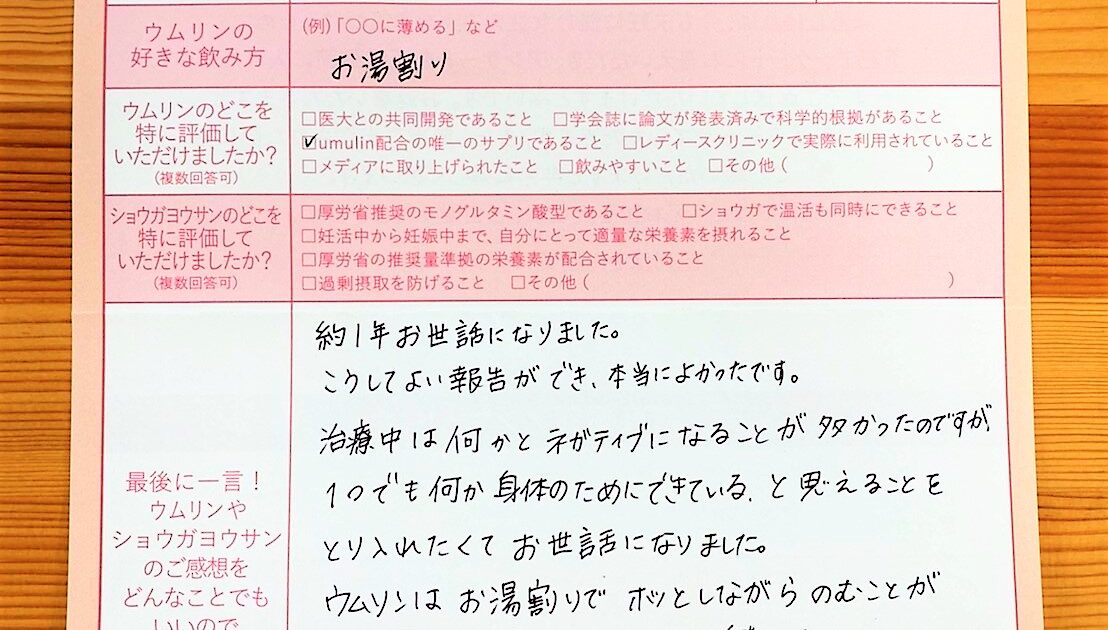 ウムリンの
好きな飲み方
(例)「〇〇に薄める」など
お湯割り
ウムリンのどこを
特に評価して
いただけましたか？
(複数回答可)
□医大との共同開発であること □学会誌に論文が発表済みで科学的根拠があること
☑umulin配合の唯一のサプリであること □レディースクリニックで実際に利用されていること
□メディアに取り上げられたこと □飲みやすいこと □その他( )
ショウガヨウサンのどこを
特に評価して
いただけましたか？
(複数回答可)
□厚労省推奨のモノグルタミン酸型であること □ショウガで温活も同時にできること
□妊活中から妊娠中まで、自分にとって適量な栄養素を摂れること
□厚労省の推奨量準拠の栄養素が配合されていること
□過剰摂取を防げること □その他( )
最後に一言！
ウムリンや
ショウガヨウサン
のご感想を
どんなことでも
いいので
約1年お世話になりました。
こうしてよい報告ができ、本当によかったです。
治療中は何かとネガティブになることが多かったのですが、
1つでも何か身体のためにできている、と思えることを
とり入れたくてお世話になりました。
ウムリンはお湯割りでホッとしながらのむことが